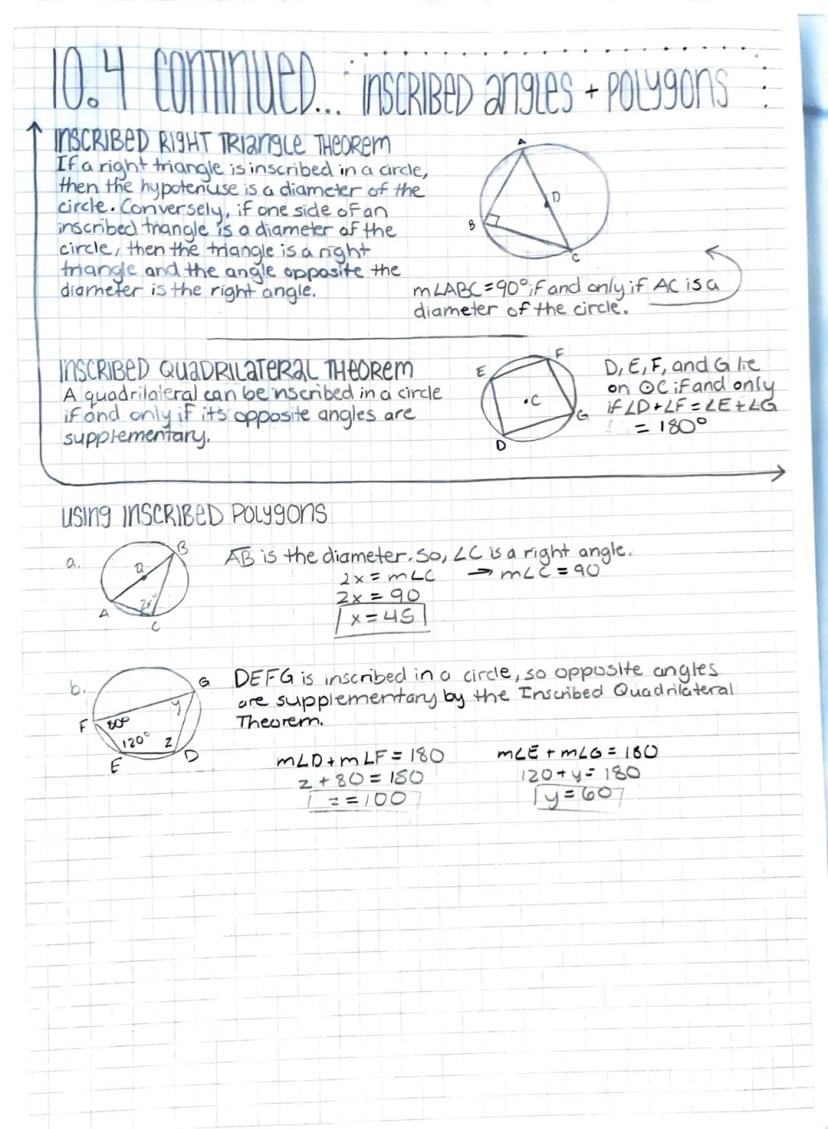 10.4 CONTINUED... INSCRIBED ANGLES + POLYGONS
INSCRIBED RIGHT TRIANGLE THEOREM
If a right triangle is inscribed in a circle,
then the hypotenuse is a diameter of the
circle. Conversely, if one side of an
inscribed triangle is a diameter of the
circle, then the triangle is a right
triangle and the angle opposite the
diameter is the right angle.
A
D
B
C
m∠ABC = 90° if and only if AC is a
diameter of the circle.
INSCRIBED QUADRILATERAL THEOREM
A quadrilateral can be inscribed in a circle
if and only if its opposite angles are
supplementary.
E
F
•C
G
D
D, E, F, and G lie
on ⊙C if and only
if ∠D+∠F = ∠E+∠G
= 180°
USING INSCRIBED POLYGONS
a.
B
Q
A
2x°
C
AB is the diameter. So, ∠C is a right angle.
2x = m∠C → m∠C = 90
2x = 90
x = 45
b.
G
y
F
80°
120°
z
E
D
DEFG is inscribed in a circle, so opposite angles
are supplementary by the Inscribed Quadrilateral
Theorem.
m∠D + m∠F = 180
z + 80 = 180
z = 100
m∠E + m∠G = 180
120 + y = 180
y = 60